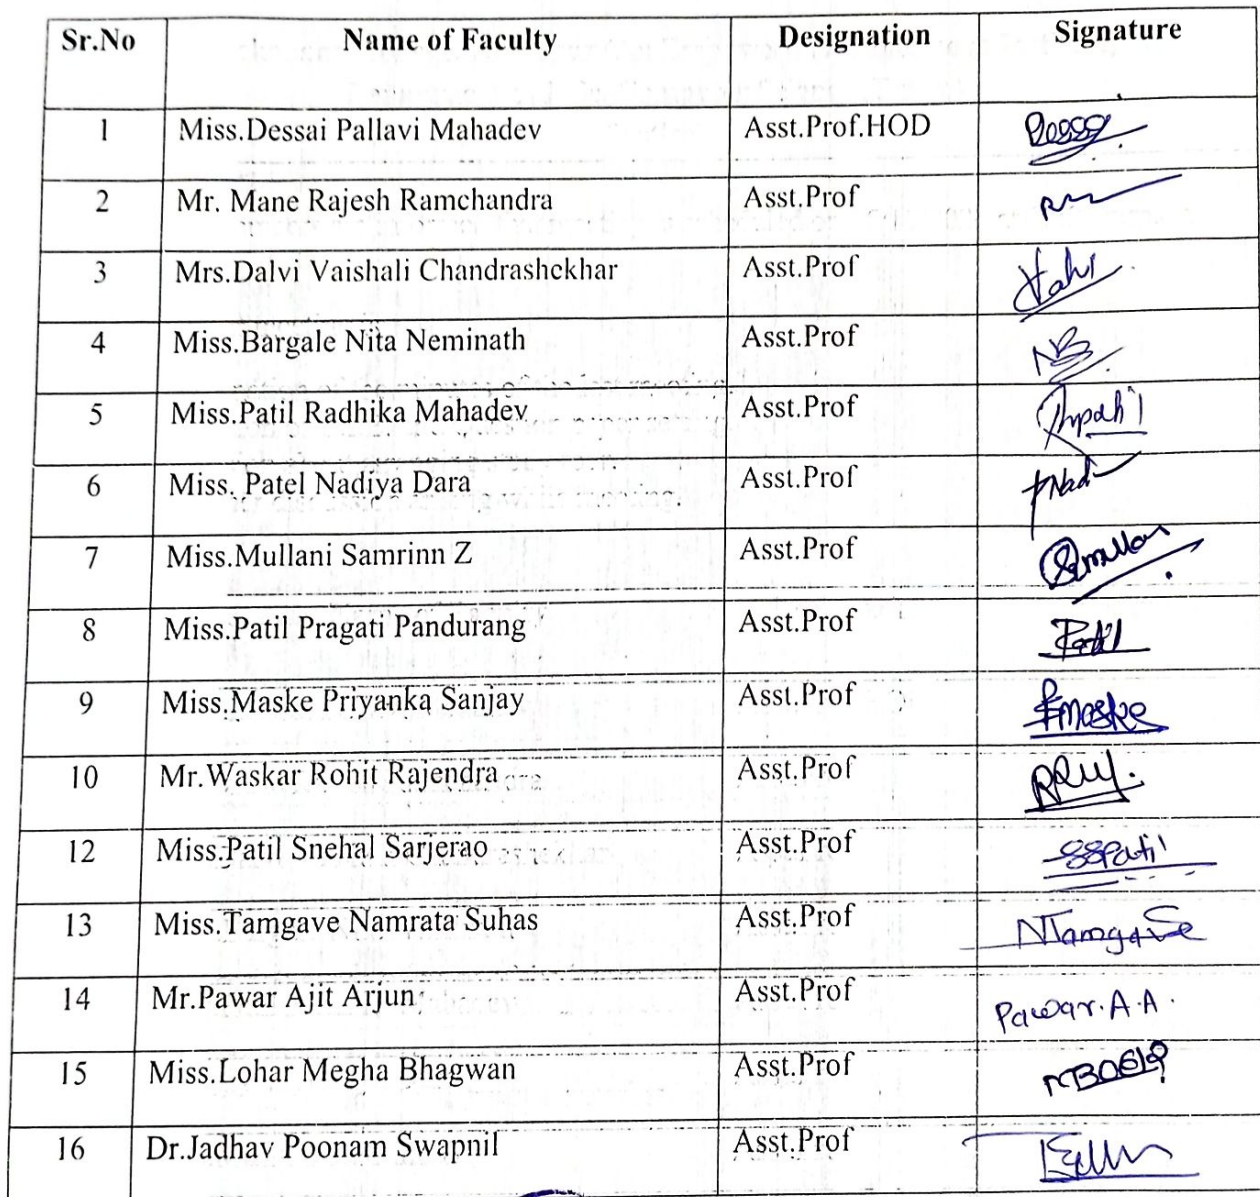 Sr.No Name of Faculty Designation Signature
1 Miss.Dessai Pallavi Mahadev Asst.Prof.HOD
2 Mr. Mane Rajesh Ramchandra Asst.Prof
3 Mrs.Dalvi Vaishali Chandrashekhar Asst.Prof
4 Miss.Bargale Nita Neminath Asst.Prof NB
5 Miss.Patil Radhika Mahadev Asst.Prof
6 Miss. Patel Nadiya Dara Asst.Prof
7 Miss.Mullani Samrinn Z Asst.Prof
8 Miss.Patil Pragati Pandurang Asst.Prof Patil
9 Miss.Maske Priyanka Sanjay Asst.Prof Pmaske
10 Mr.Waskar Rohit Rajendra Asst.Prof
12 Miss.Patil Snehal Sarjerao Asst.Prof SSPatil
13 Miss.Tamgave Namrata Suhas Asst.Prof NTamgave
14 Mr.Pawar Ajit Arjun Asst.Prof Pawar.A.A.
15 Miss.Lohar Megha Bhagwan Asst.Prof
16 Dr.Jadhav Poonam Swapnil Asst.Prof